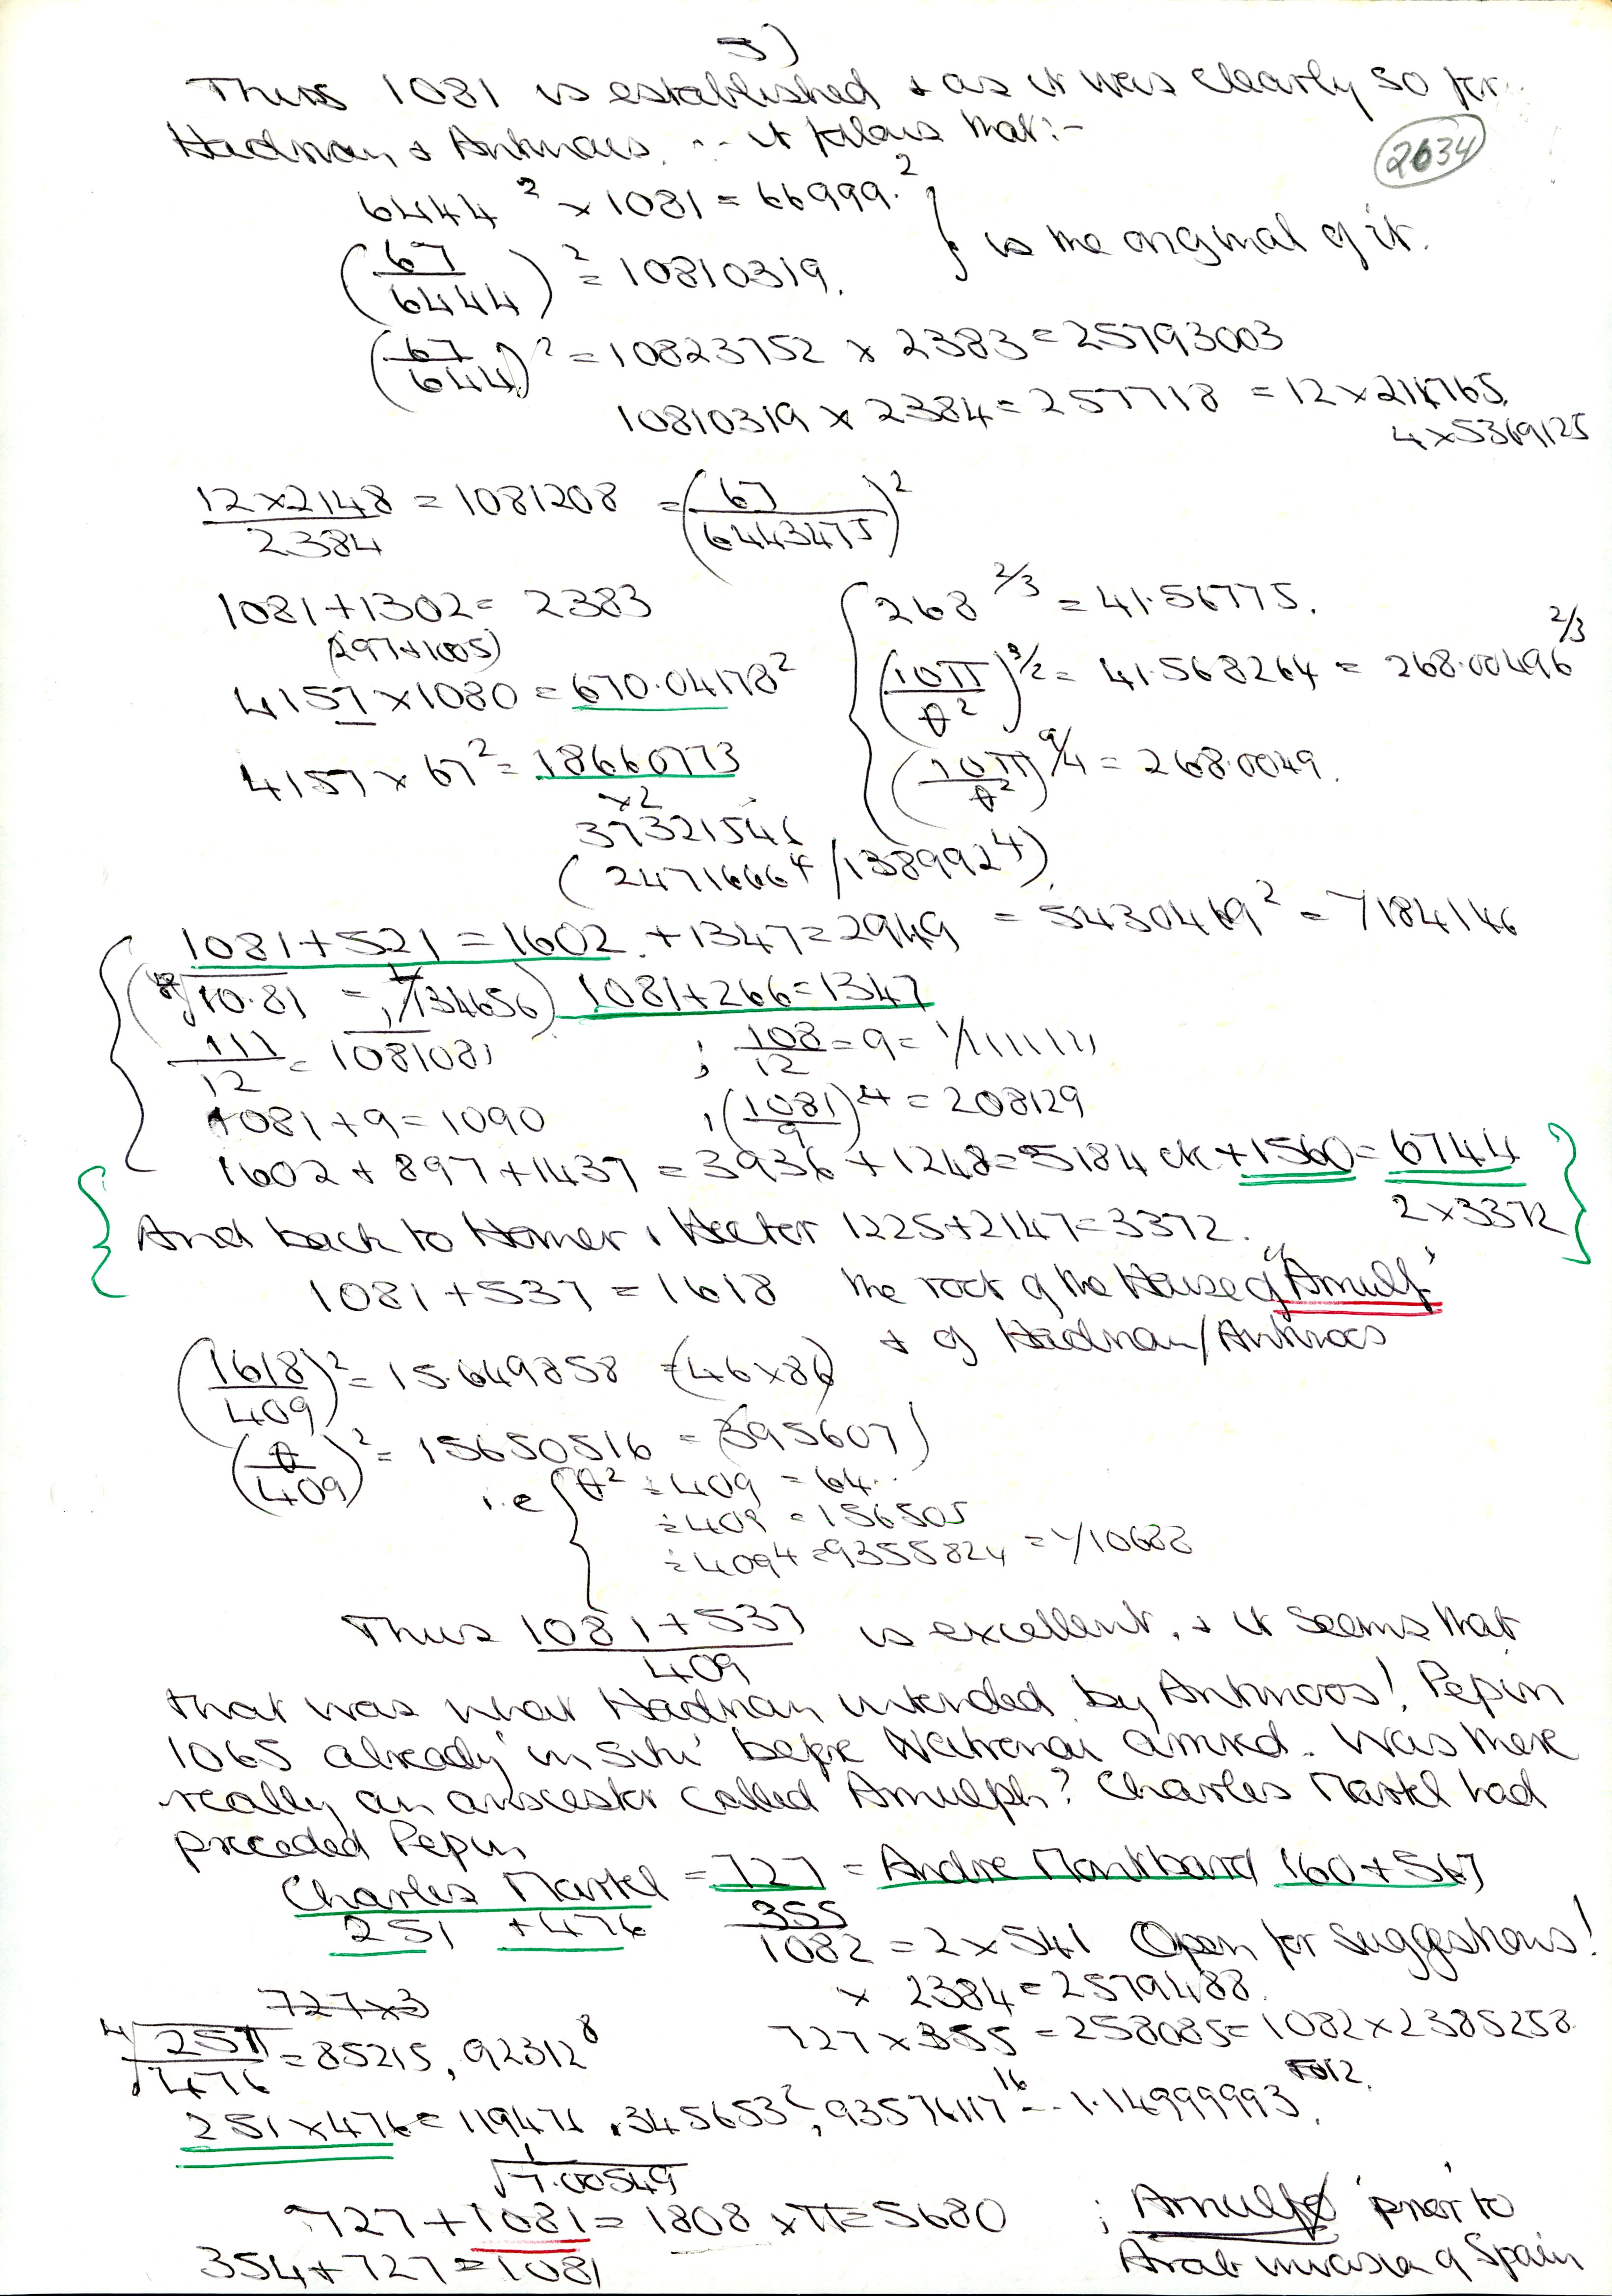 5)
Thus 1081 is established + as it was clearly so for
Hadrian + Antinous. ∴ it follows that:-
2634
6444² × 1081 = 66999.²
} is the original of it.
(67/6444)² = 10810319.
(67/644)² = 10823752 × 2383 = 25793003
10810319 × 2384 = 257718 = 12 × 214765
4 × 5369125
12×2148/2384 = 1081208 = (67/6443475)²
1081 + 1302 = 2383
(297+1005)
268^2/3 = 41.56775.
4157 × 1080 = 670.04178²
(10π/θ²)^3/2 = 41.568264 = 268.00496^2/3
4157 × 67² = 18660773
(10π/θ²)^9/4 = 268.0049.
×2
37321546
(24716664 / 138992⁴)
1081+521 = 1602. +1347=2949 = 5430419² = 7184146
10.81 = 1/134656) 1081+266=1347
111/12 = 1081081 ; 108/12 = 9 = 1/111111
1081 + 9 = 1090 , (1081/9)⁴ = 208129
1602 + 897 + 1437 = 3936 + 1248 = 5184 etc. + 1560 = 6744
2×3372
And back to Homer, Hector 1225+2147=3372.
1081 + 537 = 1618 the root of the House of 'Arnulf'
+ of Hadrian/Antinoos
(1618/409)² = 15.649858 = (46×86)
(θ/409)² = 15650516 = (395607)
i.e { θ² ÷ 409 = 64..
÷ 409 = 156505
÷ 409⁴ = 9355824 = 1/10688
Thus 1081+537/409 is excellent, + it seems that
that was what Hadrian intended by Antinoos! Pepin
1065 already 'in situ' before Natronai arrived. Was there
really an ancestor called Arnulph? Charles Martel had
preceded Pepin
Charles Martel = 727 = Andre Montbard 160+567
251 + 476
355
1082 = 2×541 Open for suggestions!
× 2384 = 2579488.
727×3
727 × 355 = 258085 = 1082×2385258
⁴√251/476 = 85215, 92312⁸
251×476 = 119476 .345653², 93576117¹⁶ = 1.14999993
1/√7.00549
727 + 1081 = 1808 × π = 5680 ; Arnulf prior to
354+727=1081 Arab invasion of Spain